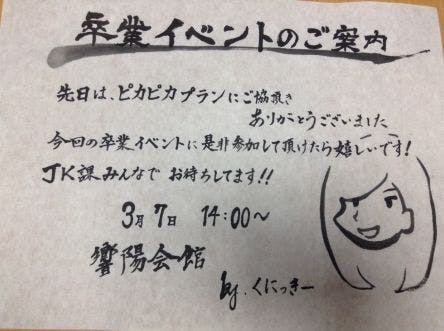 卒業イベントのご案内
先日は、ピカピカプランにご協頂き
ありがとうございました
今回の卒業イベントに是非参加して頂けたら嬉しいです!
JK課みんなで お待ちしてます!!
3月7日 14:00~
響陽会館
by.くにっきー